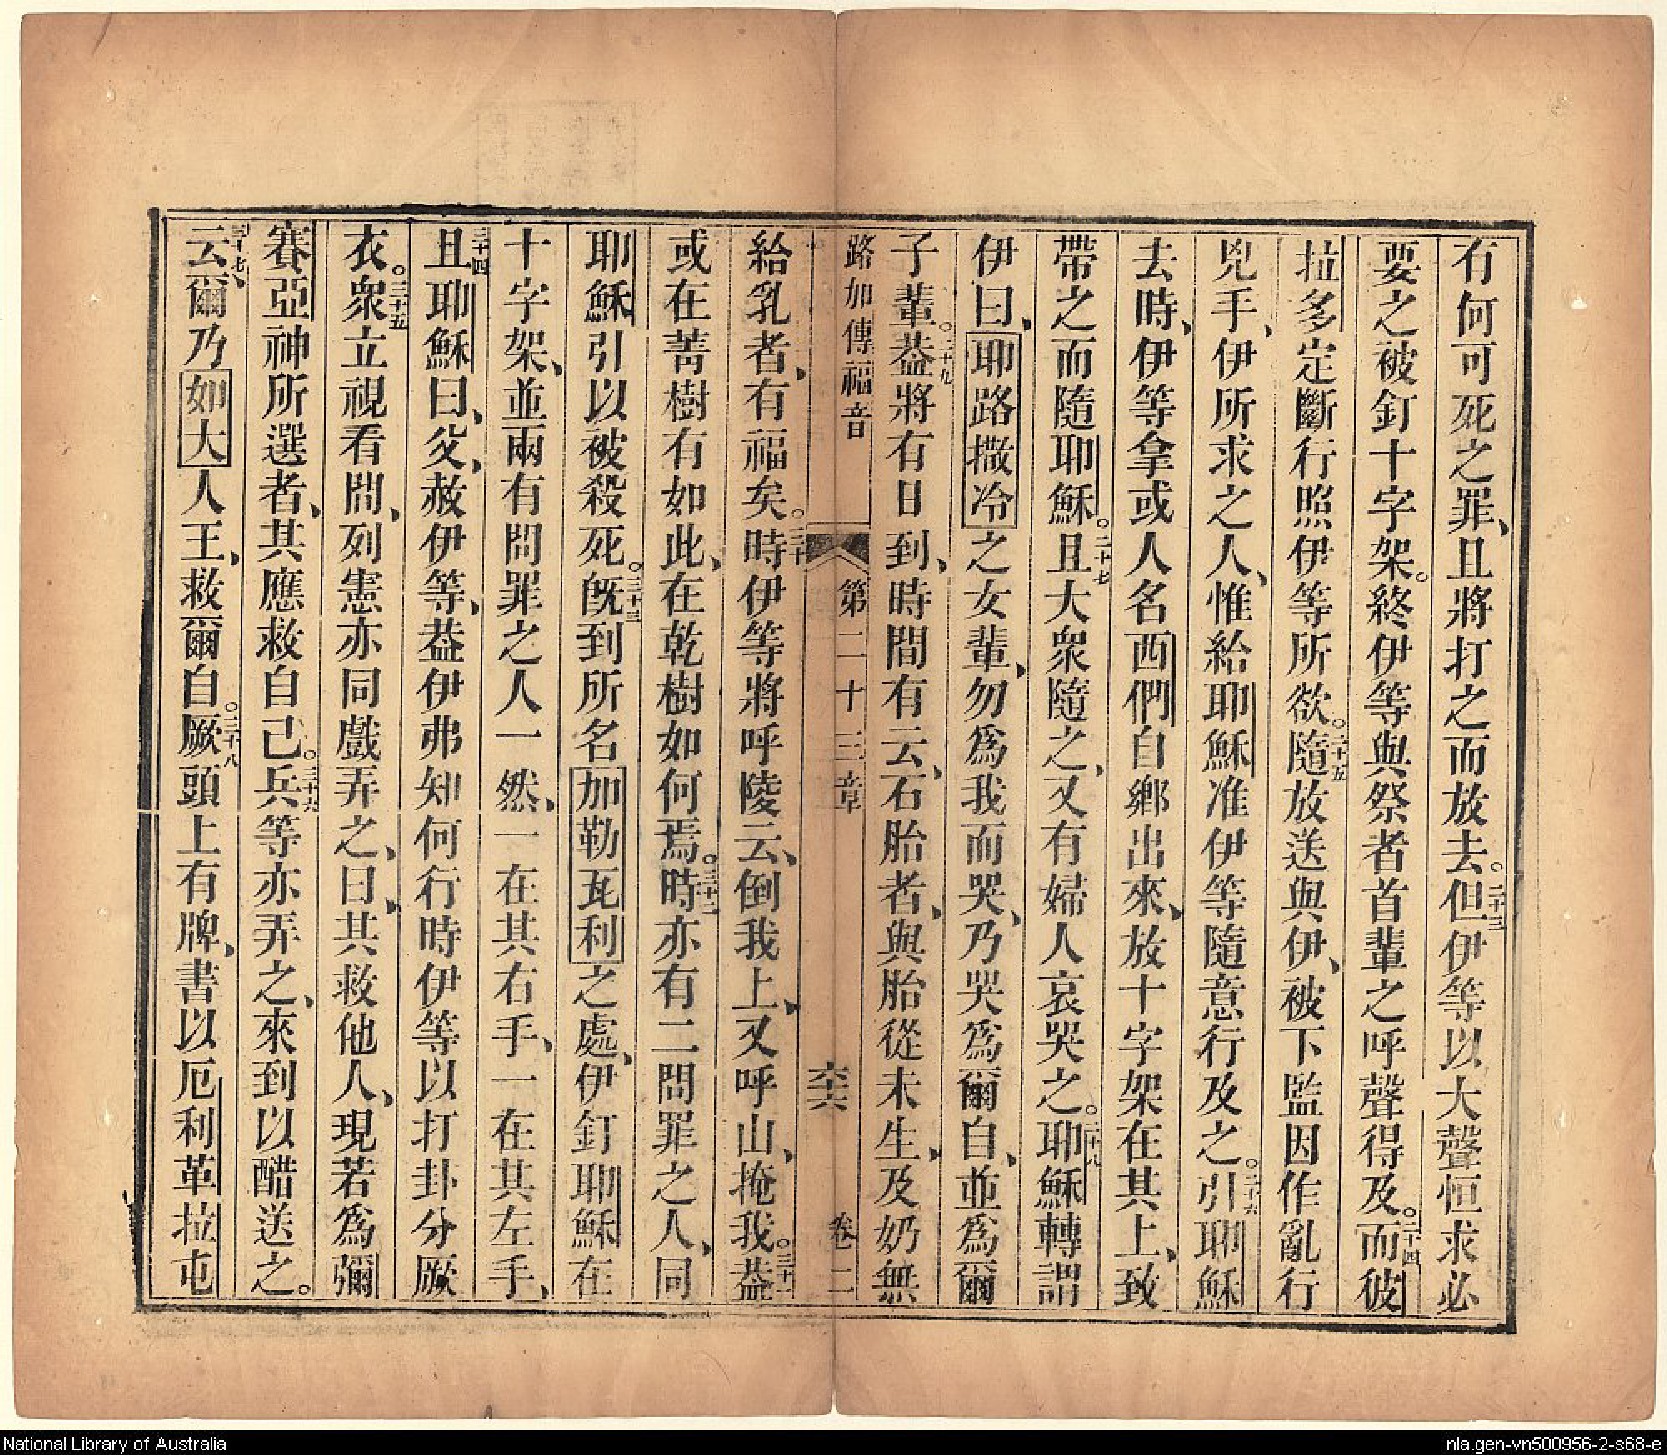 有何可死之罪、且將打之而放去。二十三但伊等以大聲恒求必
要之被釘十字架。終伊等與祭者首輩之呼聲得及。二十四而彼
拉多定斷行照伊等所欲。二十五隨放送與伊、被下監因作亂行
兇手、伊所求之人、惟給耶穌准伊等隨意行及之。二十六引耶穌
去時、伊等拿或人名西們自鄉出來、放十字架在其上、致
帶之而隨耶穌。二十七且大衆隨之、又有婦人哀哭之。二十八耶穌轉謂
伊曰、耶路撒冷之女輩、勿爲我而哭、乃哭爲爾自、並爲爾
子輩。二十九葢將有日到、時間有云、石胎者、與胎從未生、及奶無
路加傳福音 第二十三章 六六 卷二
給乳者、有福矣。三十時伊等將呼陵云、倒我上、又呼山、掩我。三十一葢
或在菁樹有如此、在乾樹如何焉。三十二時亦有二問罪之人、同
耶穌引以被殺死。三十三旣到所名加勒瓦利之處、伊釘耶穌在
十字架、並兩有問罪之人一然、一在其右手、一在其左手、
三十四且耶穌曰、父、赦伊等、葢伊弗知何行時伊等以打卦分厥
衣。三十五衆立視看間、列憲亦同戲弄之、曰、其救他人、現若爲彌
賽亞神所選者、其應救自己。三十六兵等亦弄之、來到以醋送之。
三十七云、爾乃如大人王、救爾自。三十八厥頭上有牌、書以厄利革拉屯
National Library of Australia
nla.gen-vn500956-2-s68-e